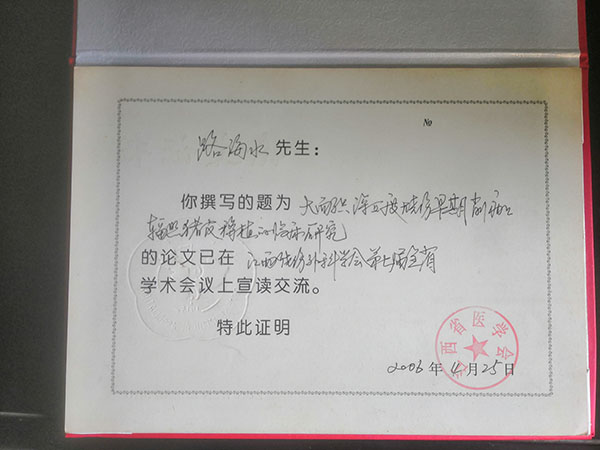 No
路海水 先生：
你撰写的题为 大面积深Ⅱ度烧伤早期削痂
辐照猪皮移植的临床研究
的论文已在 江西烧伤外科学会第七届全省
学术会议上宣读交流。
特此证明
江西省医学会
2006 年 11 月 25 日